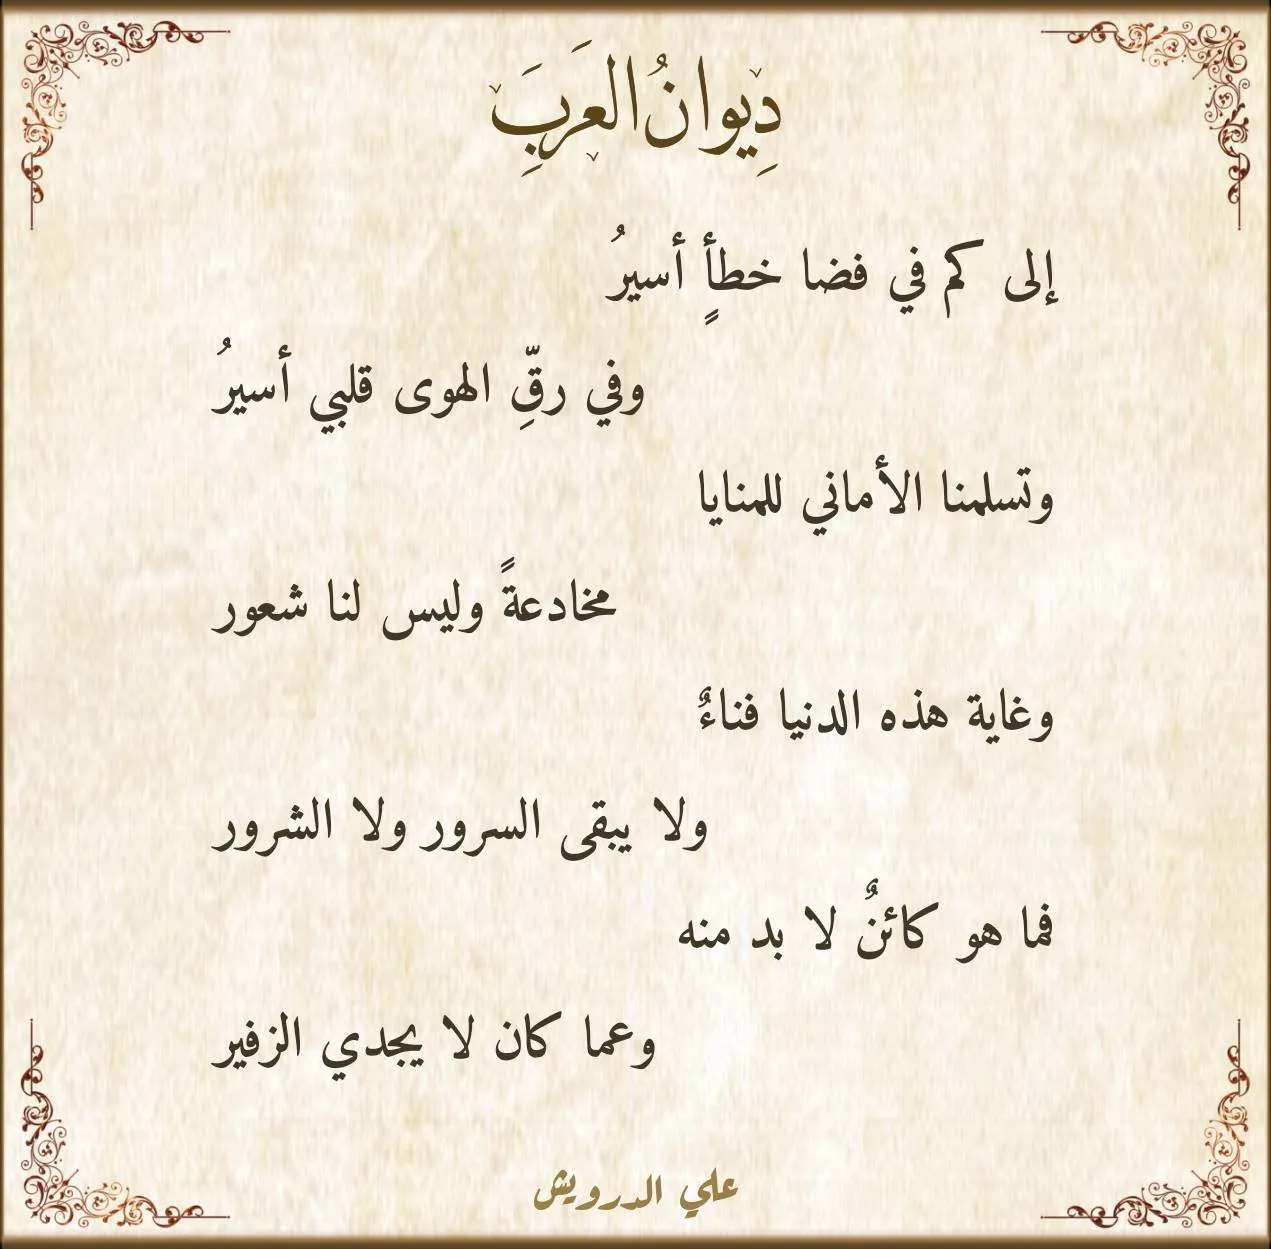 دِيوانُ العَربِ
إلى كم في فضا خطأٍ أسيرُ
وفي رقِّ الهوى قلبي أسيرُ
وتسلمنا الأماني للمنايا
مخادعةً وليس لنا شعور
وغاية هذه الدنيا فناءٌ
ولا يبقى السرور ولا الشرور
فما هو كائنٌ لا بد منه
وعما كان لا يجدي الزفير
علي الدرويش